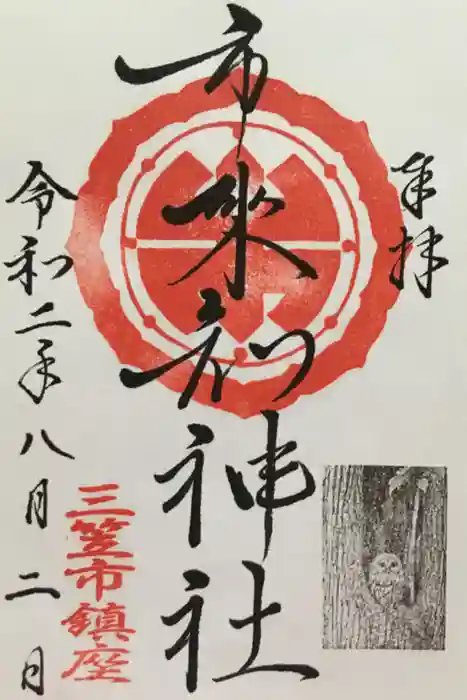 奉拝
市来知神社
令和二年八月二日
三笠市鎮座